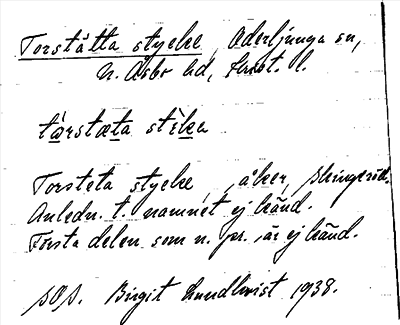 Torstätta stycke, Oderljunga sn,
N. Åsbo hd, Krist. l.
tårstæta stika
Torsteta stycke, åker, Skingeröd.
Anledn. t. namnet ej känd.
Första delen som n. pr. är ej känd.
SOS. Birgit Lundkvist 1938.